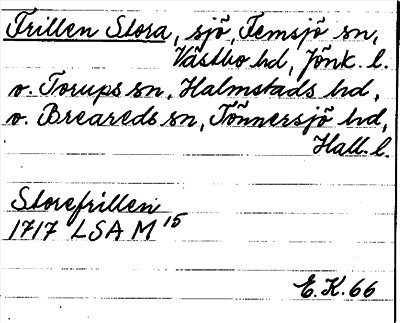 Frillen Stora, sjö, Femsjö sn,
Västbo hd, Jönk. l.
o. Torups sn, Halmstads hd,
o. Breareds sn, Tönnersjö hd,
Hall. l.
Storefrillen
1717 LSA M 15
E.K. 66